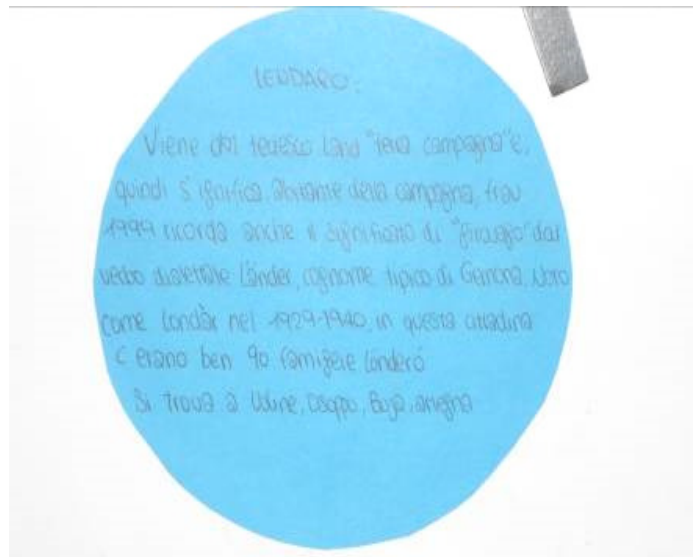 LENDARO:
Viene dal tedesco Land "terra campagna" e,
quindi significa, abitante della campagna, frau
1999 ricorda anche il significato di "girovago" dal
verbo dialettale Lànder, cognome tipico di Gemona, Noto
come Londàr nel 1929-1940, in questa cittadina
C'erano ben 90 famigere Londerò
Si trova a Udine, Osoppo, Buja, Artegna